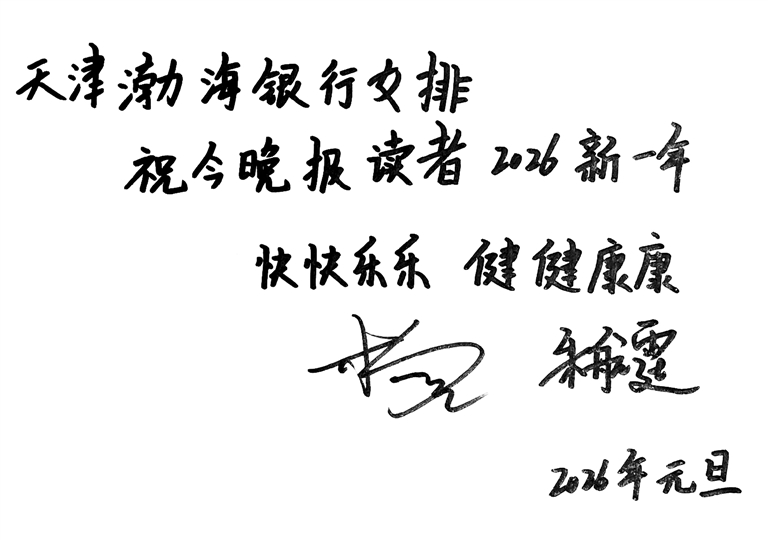 天津渤海银行女排
祝今晚报读者 2026 新一年
快快乐乐 健健康康
2026年元旦